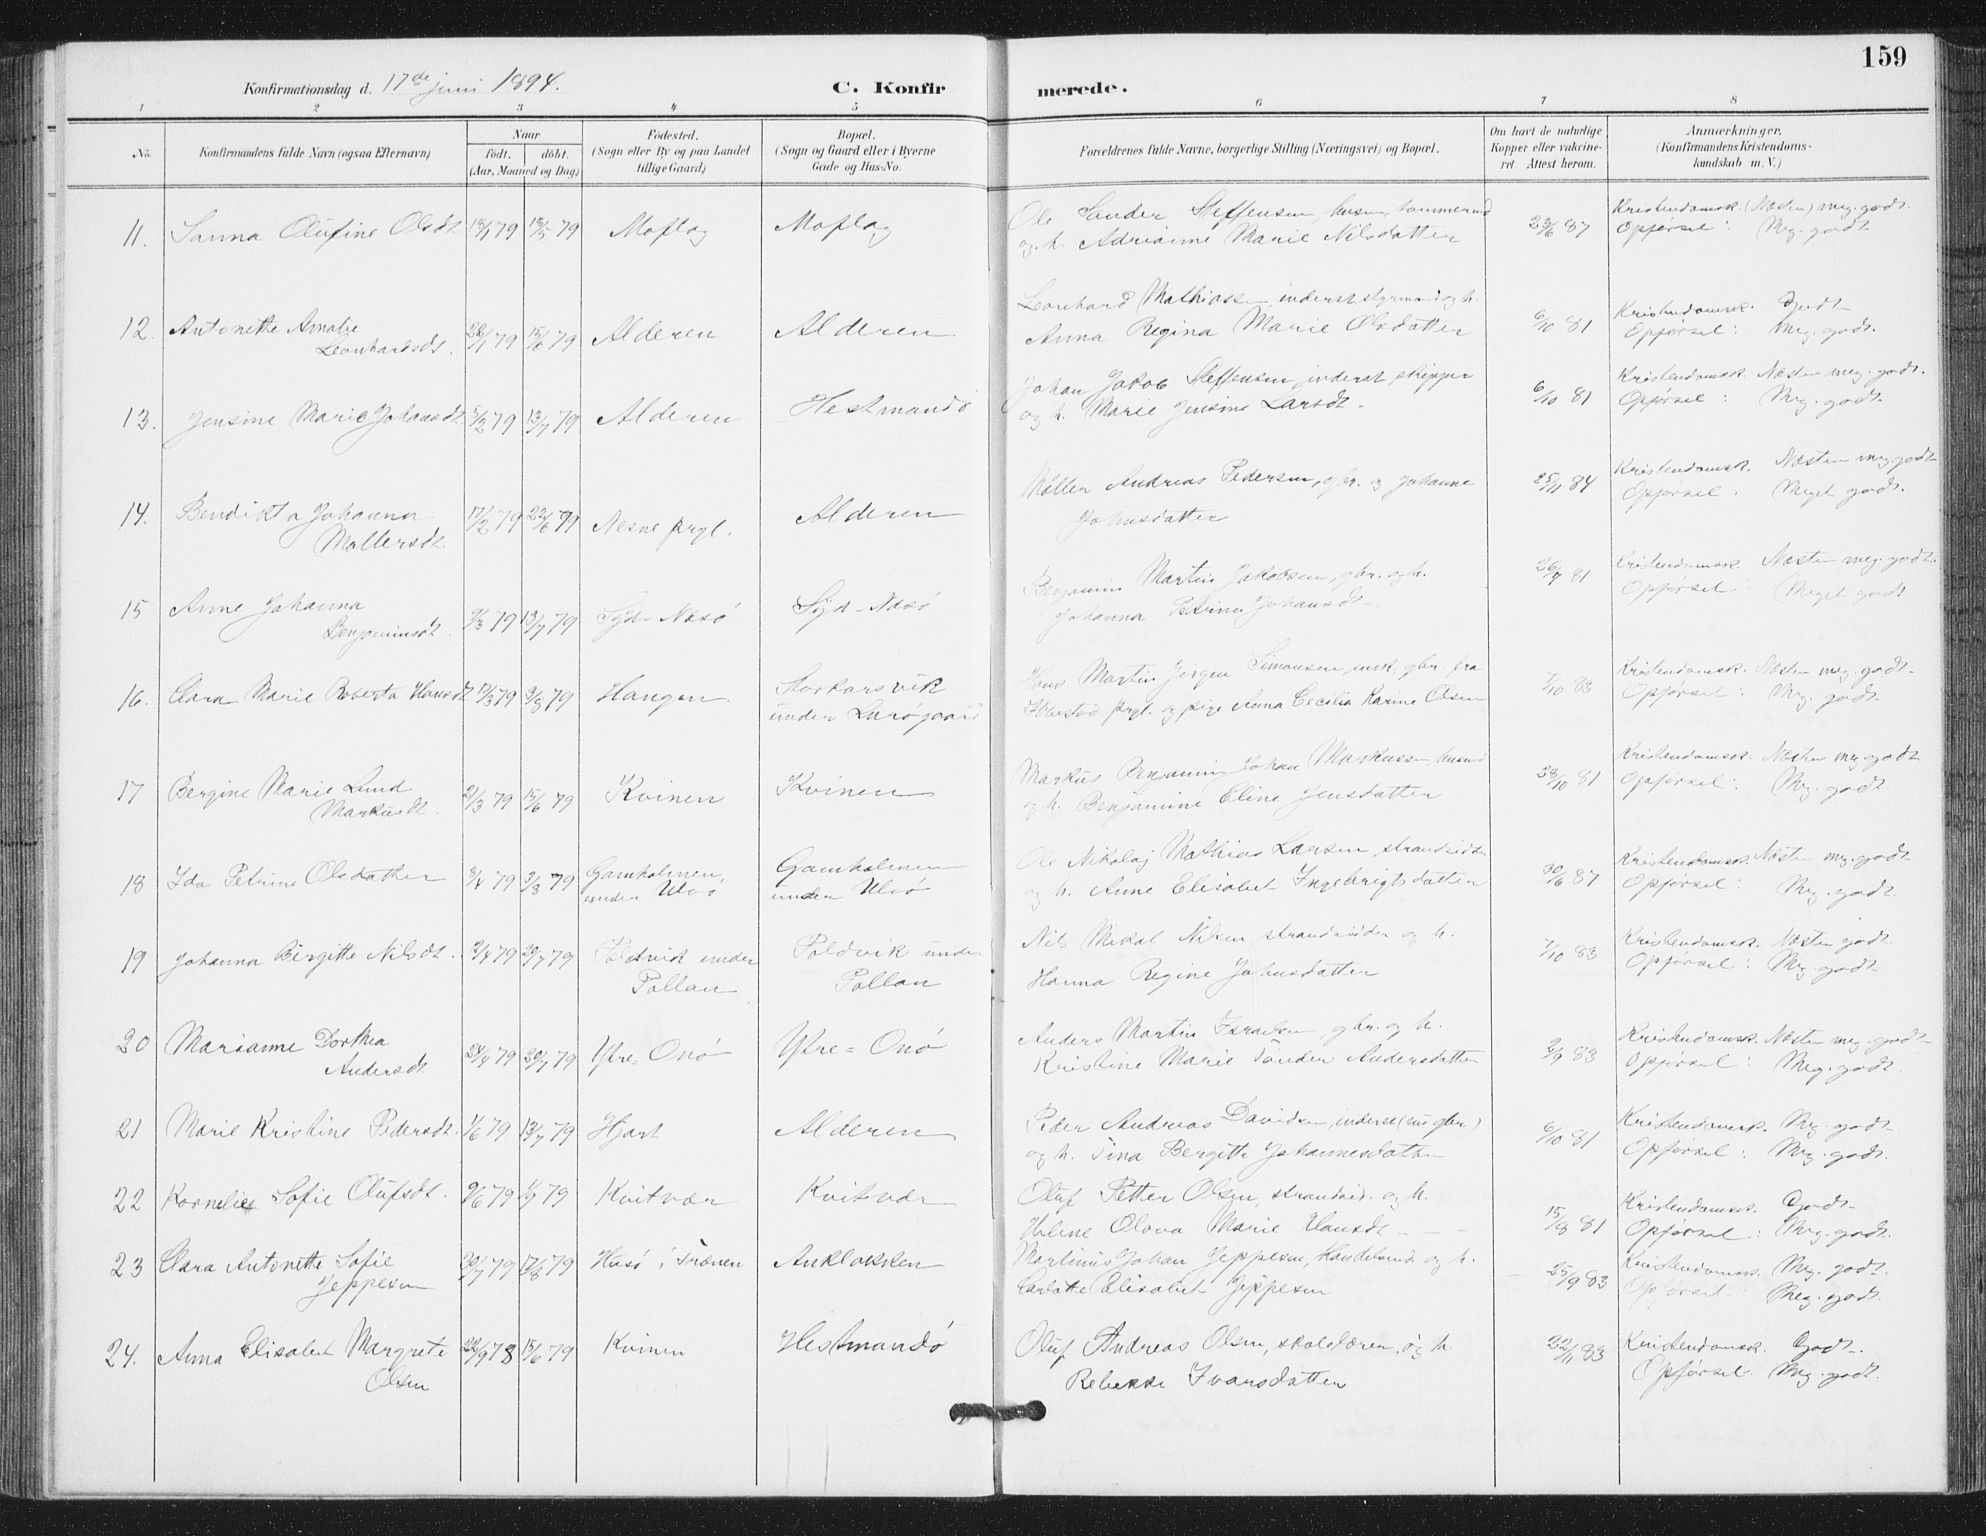 159
Konfirmationsdag d. 17de juni 1894. C. Konfirmerede.
1 2 3 4 5 6 7 8
No. Konfirmandens fulde Navn (ogsaa Efternavn) Naar født. døbt. (Aar, Maaned og Dag) Fødested. (Sogn eller By og paa Landet tillige Gaard) Bopæl. (Sogn og Gaard eller i Byerne Gade og Hus-No. Forældrenes fulde Navne, borgerlige Stilling (Næringsvei) og Bopæl. Om havt de naturlige Kopper eller vakcineret. Attest herom. Anmærkninger. (Konfirmandens Kristendomskundskab m. V.)
11. Sanna Olufine Olsdt. 79 79 Moflag Moflag Ole Sander Steffensen, husm., tømmermd 23/6 87 Kristendomsk. (Næsten) meg. godt.
og h. Adrianne Marie Nilsdatter Opførsel: Meg. godt.
12. Antonette Amalie 79 15/6 79 Alderen Alderen Leonhard Mathiassen, inderst, styrmand og h. 6/10 81 Kristendomsk. Godt
Leonhardsdt. Anna Regina Marie Olsdatter Opførsel: Meg. godt.
13. Jensine Marie Johansdt. 5/2 79 13/7 79 Alderen Hestmandø Johan Jakob Steffensen, inderst, skipper 6/10 81 Kristendomsk. Næsten meg. godt.
og h. Marie Jensine Larsdt. Opførsel: Meg. godt.
14. Benedikta Johanna 17/2 79 22/6 79 Nesne prgl. Alderen Møller Andreas Pedersen, gbr. og Johanne 25/11 84 Kristendomsk. Næsten meg. godt
Møllersdt. Johnsdatter Opførsel. Meget godt.
15 Anne Johanna 79 13/7 79 Syd-Næsø Syd-Næsø Benjamin Martin Jakobsen, gbr. og h. 81 Kristendomsk. Næsten meg. godt.
Benjaminsdt. Johanna Petrine Johansdt. Opførsel Meget godt
16. Clara Marie Roberta Hansdt. 17/3 79 3/8 79 Hangen Storkorsvik Hans Martin Jørgen Simonsen, unk. gbr. fra 7/10 83 Kristendomsk. Næsten meg. godt.
under Lurøgaard Ibbestad prgl. og pige Anna Cecilia Karine Olsen Opførsel: Meg. godt.
17 Bergine Marie Lund 79 15/6 79 Kvinen Kvinen Markus Benjamin Johan Markussen, husmd 81 Kristendomsk. Næsten meg. godt
Markusdt. og h. Benjamine Eline Jensdatter Opførsel: Meg. godt.
18 Ida Petrine Olsdatter 3/4 79 3/8 79 Gamholmen, Gamholmen Ole Nikolaj Mathias Larsen, strandsidder 30/6 87 Kristendomsk. Næsten meg. godt
under Ulvø under Ulvø og h. Anne Elisabet Ingebrigtsdatter Opførsel: Meg. godt.
19 Johanna Birgitte Nilsdt. 79 20/7 79 Poldvik under Poldvik under Nils Mikal Nilsen, strandsidder og h. 7/10 83 Kristendomsk. Næsten godt.
Pollan Pollan Hanna Regine Johnsdatter Opførsel: Meg. godt.
20 Marianne Dorthea 24/4 79 20/7 79 Ytre-Onø Ytre-Onø Anders Martin Israelsen, gbr. og h. 2/9 83 Kristendomsk. Næsten meg. godt
Andersdt. Kristine Marie Tønder Andersdatter Opførsel: Meg. godt.
21 Marie Kristine Pedersdt. 1/6 79 13/7 79 Hjart Alderen Peder Andreas Davidsen, inderst (nu gbr.) 6/10 81 Kristendomsk. Meg. godt.
og h. Tina Bergitte Johannesdatter Opførsel: Meg. godt.
22 Kornelie Sofie Olufsdt. 9/6 79 1/9 79 Kvitvær Kvitvær Oluf Petter Olsen, strandsid. og h. 15/8 81 Kristendomsk. Godt
Helene Olava Marie Hansdt. Opførsel: Meg. godt.
23 Clara Antonette Sofie 20/7 79 17/8 79 Husø i Trænen Anklakken Martinus Johan Jeppesen, handelsmd. og h. 25/9 83 Kristendomsk. Meg. godt.
Jeppesen Carlotte Elisabet Jeppesen Opførsel: Meg. godt.
24. Anna Elisabet Margrete 22/9 78 15/6 79 Kvinen Hestmandø Oluf Andreas Olsen, skolelærer, og h. 22/11 83 Kristendomsk. Godt.
Olsen Rebekke Ivarsdatter Opførsel. Meg. godt.